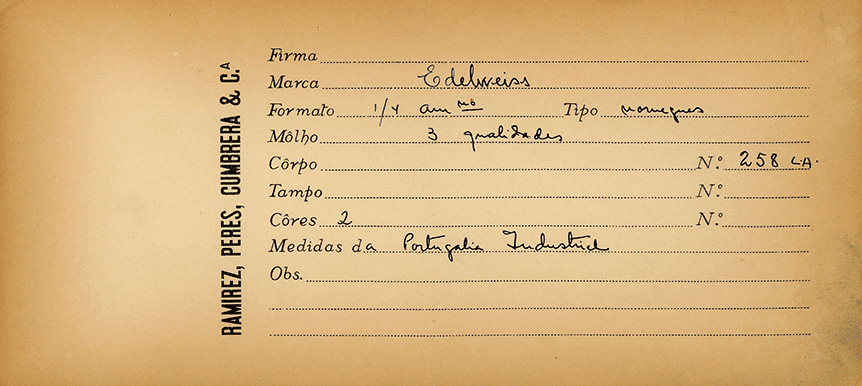 RAMIREZ, PERES, CUMBRERA & C.ᴬ
Firma
Marca Edelweiss
Formato 1/4 am no Tipo noruegues
Môlho 3 qualidades
Côrpo N.º 258 L.A.
Tampo N.º
Côres 2 N.º
Medidas da Portugalia Industrial
Obs.